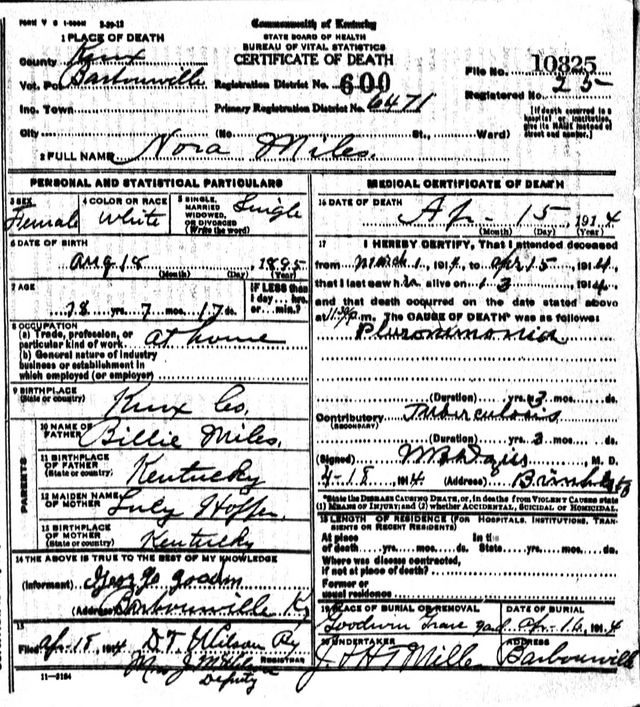 FORM V S 1-500M 3-29-12
Commonwealth of Kentucky
STATE BOARD OF HEALTH
BUREAU OF VITAL STATISTICS
CERTIFICATE OF DEATH
1 PLACE OF DEATH
County Knox
Vot. Pct. Barbourville
Inc. Town
City (No. St., Ward)
Registration District No. 600
Primary Registration District No. 6471
File No. 10825
Registered No. 25
[If death occurred in a hospital or institution, give its NAME instead of street and number.]
2 FULL NAME Nora Miles.
PERSONAL AND STATISTICAL PARTICULARS
3 SEX Female
4 COLOR OR RACE White
5 SINGLE, MARRIED WIDOWED, OR DIVORCED (Write the word) Single
6 DATE OF BIRTH
Aug 18 1895
(Month) (Day) (Year)
7 AGE
18 yrs. 7 mos. 17 ds.
IF LESS than 1 day... hrs. or... min.?
8 OCCUPATION
(a) Trade, profession, or particular kind of work at home
(b) General nature of industry business or establishment in which employed (or employer)
9 BIRTHPLACE (State or country) Knox Co.
PARENTS
10 NAME OF FATHER Billie Miles.
11 BIRTHPLACE OF FATHER (State or country) Kentucky
12 MAIDEN NAME OF MOTHER Lucy
13 BIRTHPLACE OF MOTHER (State or country) Kentucky
14 THE ABOVE IS TRUE TO THE BEST OF MY KNOWLEDGE
(Informant)
(Address) Barbourville Ky
15
Filed Apr-18, 1914 D.T. Wilson Ry
REGISTRAR
Deputy
11-3184
MEDICAL CERTIFICATE OF DEATH
16 DATE OF DEATH
Ap - 15, 1914
(Month) (Day) (Year)
17 I HEREBY CERTIFY, That I attended deceased
from March 1, 1914, to Apr 15, 1914,
that I last saw h alive on 13, 1914,
and that death occurred on the date stated above
at m. The CAUSE OF DEATH* was as follows:
(Duration) yrs. 3 mos. ds.
Contributory Tuberculosis
(SECONDARY)
(Duration) yrs. 3 mos. ds.
(Signed) M. D.
4-18, 1914 (Address)
*State the DISEASE CAUSING DEATH, or, in deaths from VIOLENT CAUSES state
(1) MEANS OF INJURY; and (2) whether ACCIDENTAL, SUICIDAL or HOMICIDAL.
18 LENGTH OF RESIDENCE (FOR HOSPITALS, INSTITUTIONS, TRANSIENTS OR RECENT RESIDENTS)
At place of death yrs. mos. ds. In the State yrs. mos. ds.
Where was disease contracted, if not at place of death?
Former or usual residence
19 PLACE OF BURIAL OR REMOVAL Goodwin Grave yard
DATE OF BURIAL Apr-16, 1914
20 UNDERTAKER
ADDRESS Barbourville